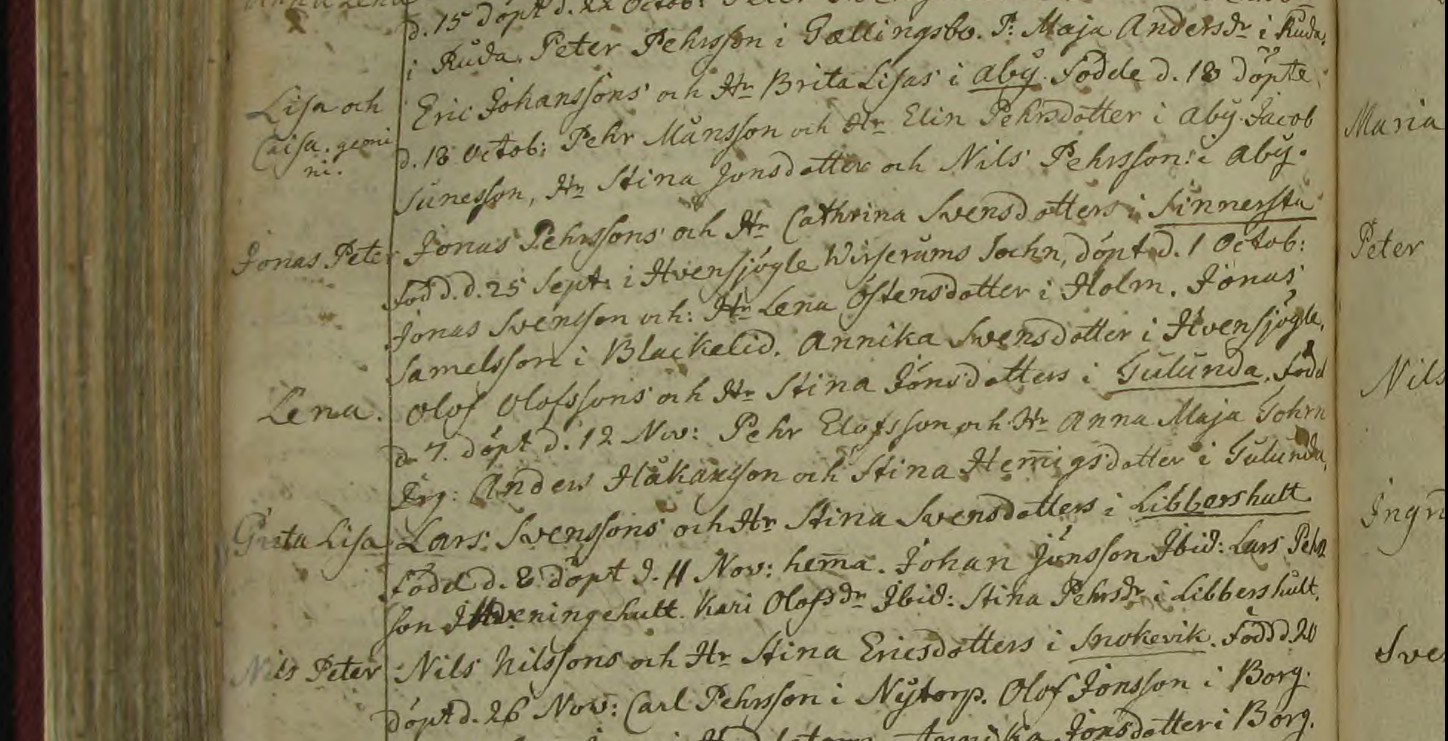 d. 15 döpt d. 22 Octob: Peter
i Ruda. Peter Pehrsson i Gællingsbo. P: Maja Andersdr i Ruda.
Lisa och Eric Johanssons och Hr Brita Lisas i Aby. Födde d. 18 döpte
Caisa. gemi d. 18 Octob: Pehr Månsson och Hr Elin Pehrsdotter i Aby. Jacob
ni. Sunesson, Hr Stina Jonsdotter och Nils Pehrsson i Aby.
Maria
Jonas Peter Jonas Pehrssons och Hr Cathrina Svensdotters i Sinnersta
Född. d. 25 Sept: i Hvensjögle Wirserums Sochn, döpt d. 1 Octob:
Peter
Jonas Svensson och: Hr Lena Östensdotter i Holm. Jonas
Samelsson i Blackelid. Annika Svensdotter i Hvensjögle.
Lena. Olof Olofssons och Hr Stina Jonsdotters i Gulunda. Född
Nils
d. 7. döpt d. 12 Nov: Pehr Elofsson och Hr Anna Maja Sohrn
Jrg: Anders Håkansson och Stina Hem̄igsdotter i Gulunda.
Greta Lisa Lars Svenssons och Hr Stina Svensdotters i Libbershult
Född d. 8. döpt d. 11 Nov: hem̄a. Johan Jonsson Jbid: Lars Pehr
son J Hveningehult. Kari Olofsdr Jbid: Stina Pehrsdr i Libbershult.
Nils Peter Nils Nilssons och Hr Stina Ericsdotters i Snokevik. Född d. 20
Sve
döpt d. 26 Nov: Carl Pehrsson i Nytorp. Olof Jonsson i Borg.
Annika Jonsdotter i Borg.